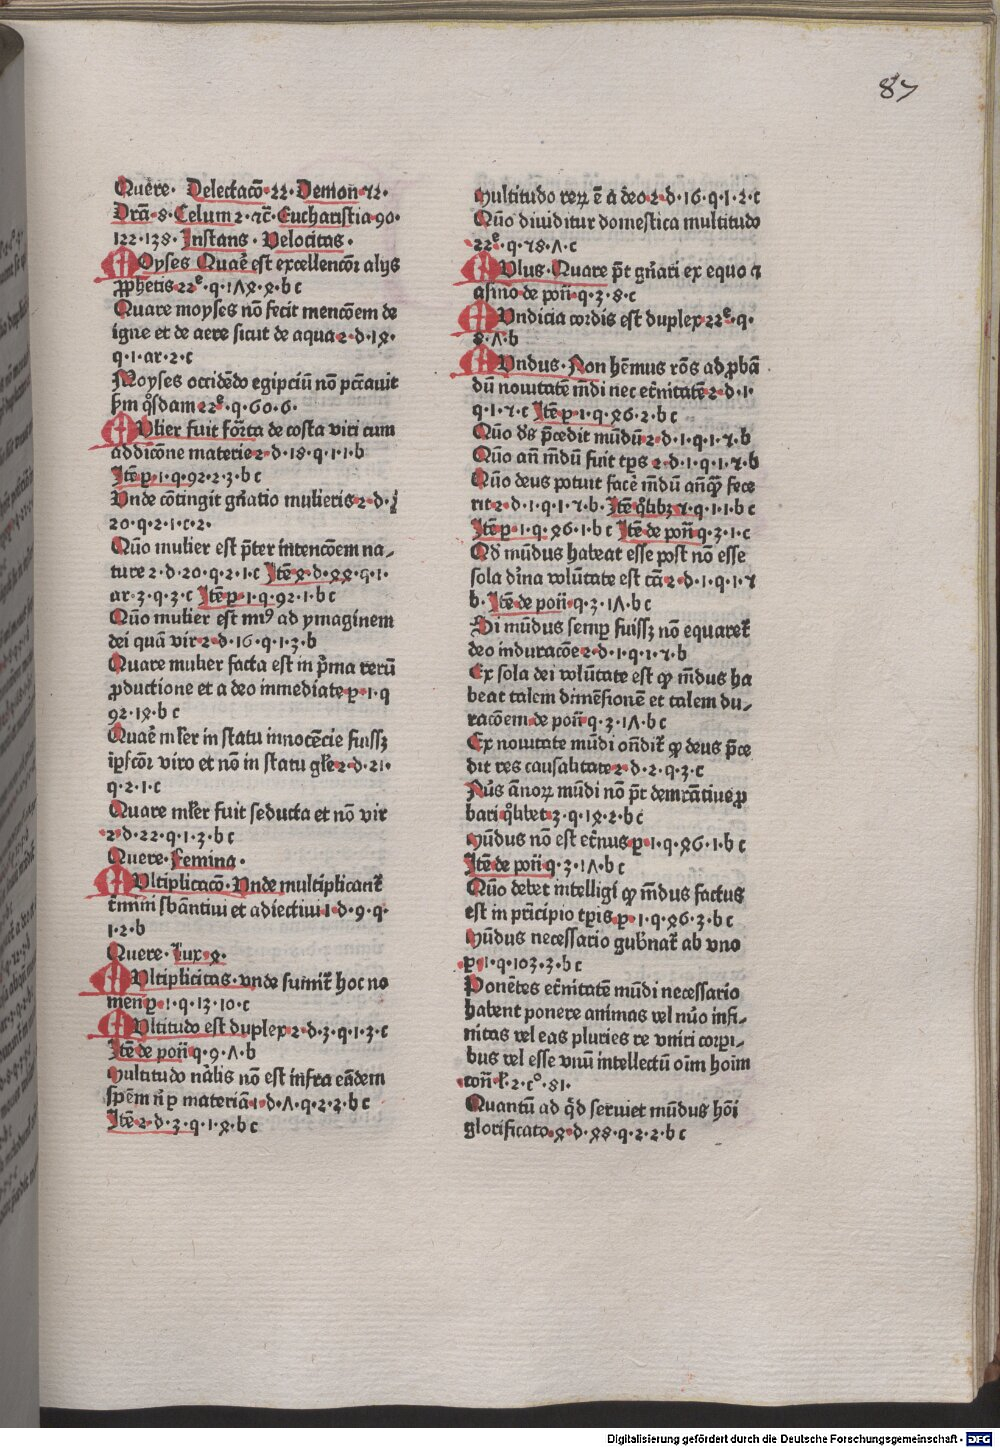 87
Quere· Delectacō·22·Demon̄·72·
Dr̄a·8·Celum 2·⁊c̄·Eucharistia·90·
122·138·Instans·Velocitas·
MOyses Quar̄ est excellencōr alijs
ꝓphetis 22ᵉ·q·1Λ4·4·b c
Quare moyses nō fecit mencōem de
igne et de aere sicut de aqua 2·d·14·
q·1·ar·2·c
Moyses occidēdo egipciū nō pc̄cauit
ẜm qͦsdam 22ᵉ·q·60·6·
MUlier fuit for̄ta de costa viri cum
addicōne materie 2·d·18·q·1·1·b
Itē ꝑ·1·q·92·2·3·b c
Vnde cōtingit gn̄atio mulieris 2·d·
20·q·2·1·c·2·
Quō mulier est p̄ter intencōem na-
ture 2·d·20·q·2·1·c Itē 4·d·44·q·1·
ar·3·q·3·c Itē ꝑ·1·q·92·1·b c
Quō mulier est mi9 ad ymaginem
dei quā vir 2·d·16·q·1·3·b
Quare mulier facta est in p̄ma rerū
ꝓductione et a deo inmediate ꝑ·1·q
92·14·b c
Quar̄ ml̄er in statu innocēcie fuissꝫ
ip̄fcōr viro et nō in statu gl̄e 2·d·21·
q·2·1·c
Quare ml̄er fuit seducta et nō vir
2·d·22·q·1·3·b c
Quere·Femina·
MUltiplicacō·Vnde multiplicant᷑
t̄mini sb̄antiui et adiectiui 1·d·9·q·
1·2·b
Quere·Lux·4·
MUltiplicitas·vnde sumit᷑ hoc no
men ꝑ·1·q·13·10·c
MUltitudo est duplex 2·d·3·q·1·3·c
Itē de pon̄ q·9·Λ·b
Multitudo nāl̄is nō est infra eādem
spēm n̄ ꝑ materiā 1·d·Λ·q·2·2·b c
Itē 2·d·3·q·1·4·b c
Multitudo reꝝ ē a deo 2·d·16·q·1·2·c
Quō diuiditur domestica multitudo
22ᵉ·q·48·Λ·c
MUlus·Quare p̄t gn̄ari ex equo ⁊
asino de pon̄ q·3·8·c
MUndicia cordis est duplex 22ᵉ·q·
8·Λ·b
MUndus·Non hēmus rōs ad ꝓbā
dū nouitatē mūdi nec et̄nitatē 2·d·1·
q·1·7·c Itē ꝑ·1·q·46·2·b c
Quō ds̄ p̄cedit mūdū 2·d·1·q·1·7·b
Quō an̄ mūdū fuit tp̄s 2·d·1·q·1·7·b
Quō deus potuit facē mūdū an̄qͣꝫ fece
rit 2·d·1·q·1·7·b·Itē qͦlibꝫ 7·q·1·1·b c
Itē ꝑ·1·q·46·1·b c Itē de pon̄ q·3·1·c
Qd̄ mūdus habeat esse post nō esse
sola diīna volūtate est cā 2·d·1·q·1·7
b·Itē de pon̄·q·3·1Λ·b c
Si mūdus semꝑ fuissꝫ nō equaret᷑
deo induracōe 2·d·1·q·1·7·b
Ex sola dei volūtate est ꝙ mūdus ha
beat talem dimēsionē et talem du-
racōem de pon̄ q·3·1Λ·b c
Ex nouitate mūdi on̄dit᷑ ꝙ deus p̄ce
dit res causalitate 2·d·2·q·3·c
Nūs an̄oꝝ mūdi nō p̄t demr̄atiue ꝓ
bari qͦlibet 3·q·14·2·b c
Mūdus nō est et̄nus ꝑ·1·q·46·1·b c
Itē de pon̄ q·3·1Λ·b c
Quō debet intelligi ꝙ mūdus factus
est in principio tp̄is ꝑ·1·q·46·3·b c
Mūdus necessario gub̄nat᷑ ab vno
ꝑ·1·q·103·3·b c
Ponētes et̄nitatē mūdi necessario
habent ponere animas vel nūo infi-
nitas vel eas pluries re vniri corꝑi-
bus vel esse vnū intellectū oīm hoīm
con̄·l᷑·2·c°·81·
Quantū ad qͥd seruiet mūdus hōi
glorificato 4·d·48·q·2·2·b c
Digitalisierung gefördert durch die Deutsche Forschungsgemeinschaft - DFG